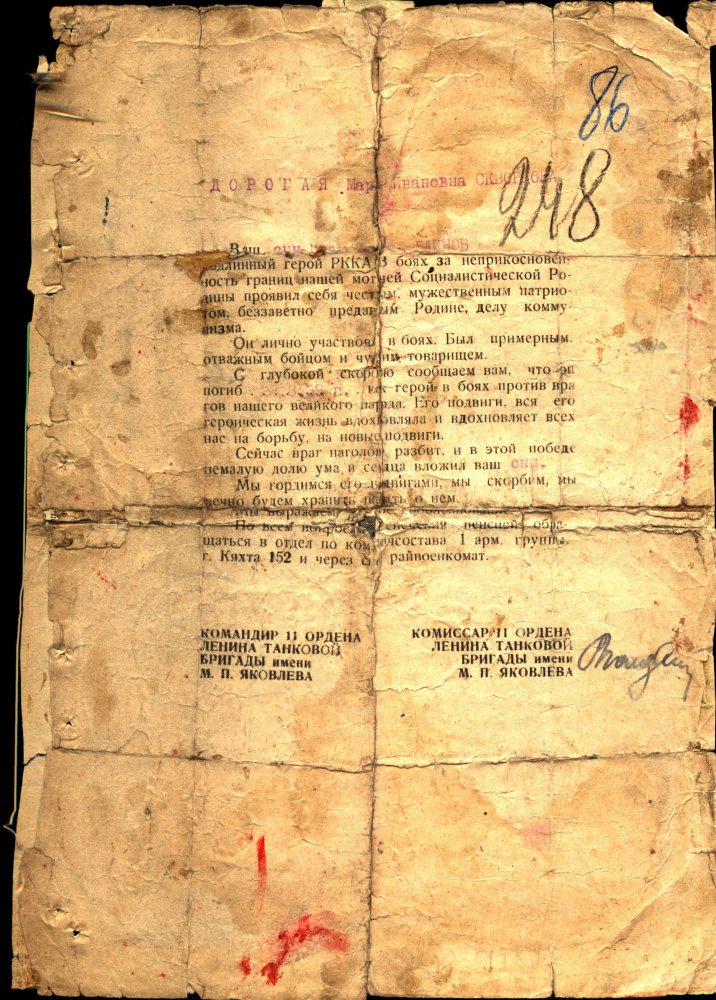 86
248
ДОРОГАЯ Ивановна
Ваш сын
подлинный герой РККА В боях за неприкосновен-
ность границ нашей могучей Социалистической Ро-
дины проявил себя честным, мужественным патрио-
том, беззаветно преданным Родине, делу комму-
низма.
Он лично участвовал в боях. Был примерным,
отважным бойцом и чутким товарищем.
С глубокой скорбью сообщаем вам, что он
погиб г. как герой в боях против вра
гов нашего великого народа. Его подвиги, вся его
героическая жизнь вдохновляла и вдохновляет всех
нас на борьбу, на новые подвиги.
Сейчас враг наголову разбит, и в этой победе
немалую долю ума и сердца вложил ваш сын.
Мы гордимся его подвигами, мы скорбим, мы
вечно будем хранить память о нем.
выражаем
По всем вопросам пенсией обра-
щаться в отдел по 1 арм. группы.
г. Кяхта 152 и через райвоенкомат.
КОМАНДИР 11 ОРДЕНА
ЛЕНИНА ТАНКОВОЙ
БРИГАДЫ имени
М. П. ЯКОВЛЕВА
КОМИССАР 11 ОРДЕНА
ЛЕНИНА ТАНКОВОЙ
БРИГАДЫ имени
М. П. ЯКОВЛЕВА